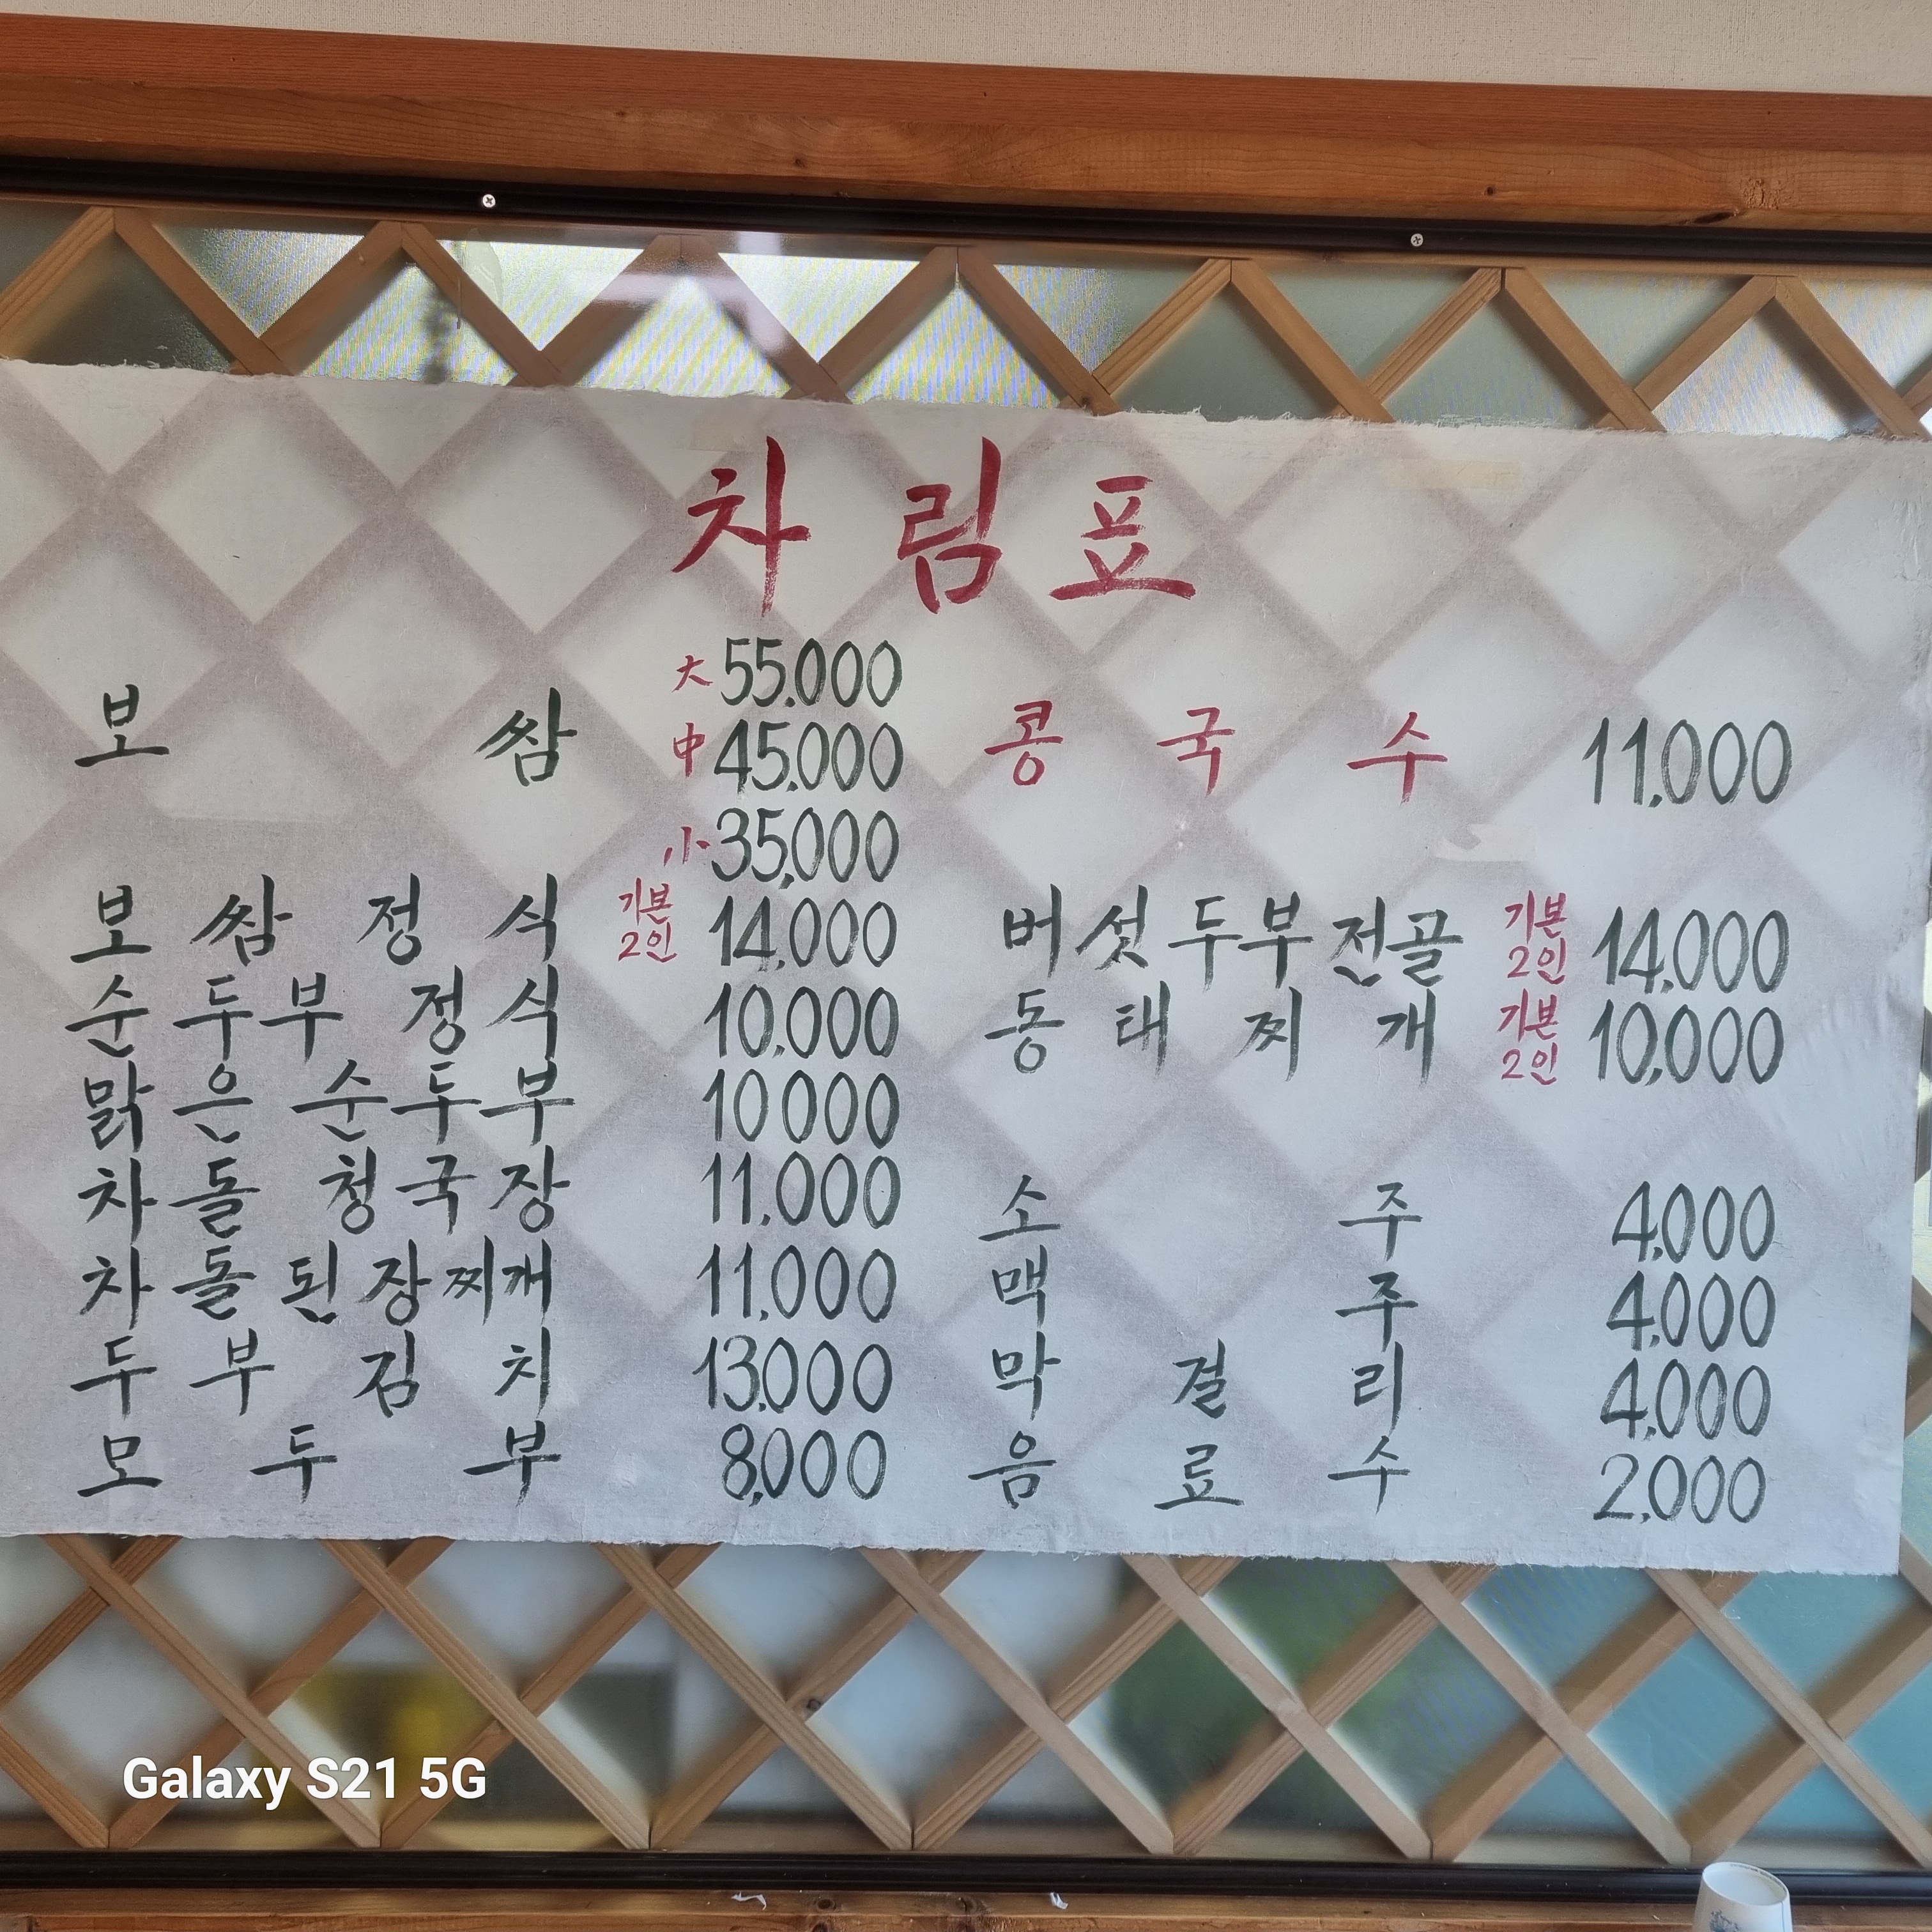 차림표
보쌈 大 55.000
中 45.000
小 35,000
보쌈정식 기본 2인 14,000
순두부정식 10.000
맑은순두부 10000
차돌청국장 11.000
차돌된장찌개 11,000
두부김치 13.000
모두부 8,000
콩국수 11.000
버섯두부전골 기본 2인 14,000
동태찌개 기본 2인 10,000
소주 4.000
맥주 4.000
막걸리 4.000
음료수 2,000
Galaxy S21 5G